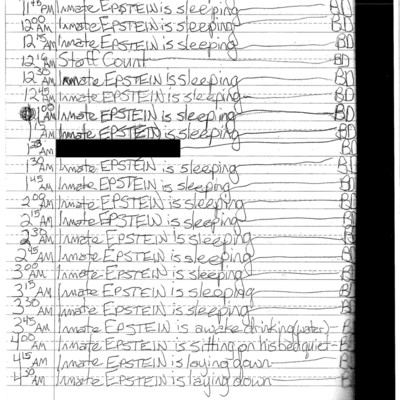 11 45 PM Inmate EPSTEIN is sleeping BD
12 00 AM Inmate EPSTEIN is sleeping BD
12 15 AM Inmate EPSTEIN is sleeping BD
12 16 AM Staff Count BD
12 30 AM Inmate EPSTEIN is sleeping BD
12 45 AM Inmate EPSTEIN is sleeping BD
1 00 AM Inmate EPSTEIN is sleeping BD
1 15 AM Inmate EPSTEIN is sleeping BD
AM BD
1 30 AM Inmate EPSTEIN is sleeping BD
1 45 AM Inmate EPSTEIN is sleeping BD
2 00 AM Inmate EPSTEIN is sleeping BD
2 15 AM Inmate EPSTEIN is sleeping BD
2 30 AM Inmate EPSTEIN is sleeping BD
2 45 AM Inmate EPSTEIN is sleeping BD
3 00 AM Inmate EPSTEIN is sleeping BD
3 15 AM Inmate EPSTEIN is sleeping BD
3 30 AM Inmate EPSTEIN is sleeping BD
3 45 AM Inmate EPSTEIN is awake drinking (water) BD
4 00 AM Inmate EPSTEIN is sitting on his bed quiet BD
4 15 AM Inmate EPSTEIN is laying down BD
4 30 AM Inmate EPSTEIN is laying down BD